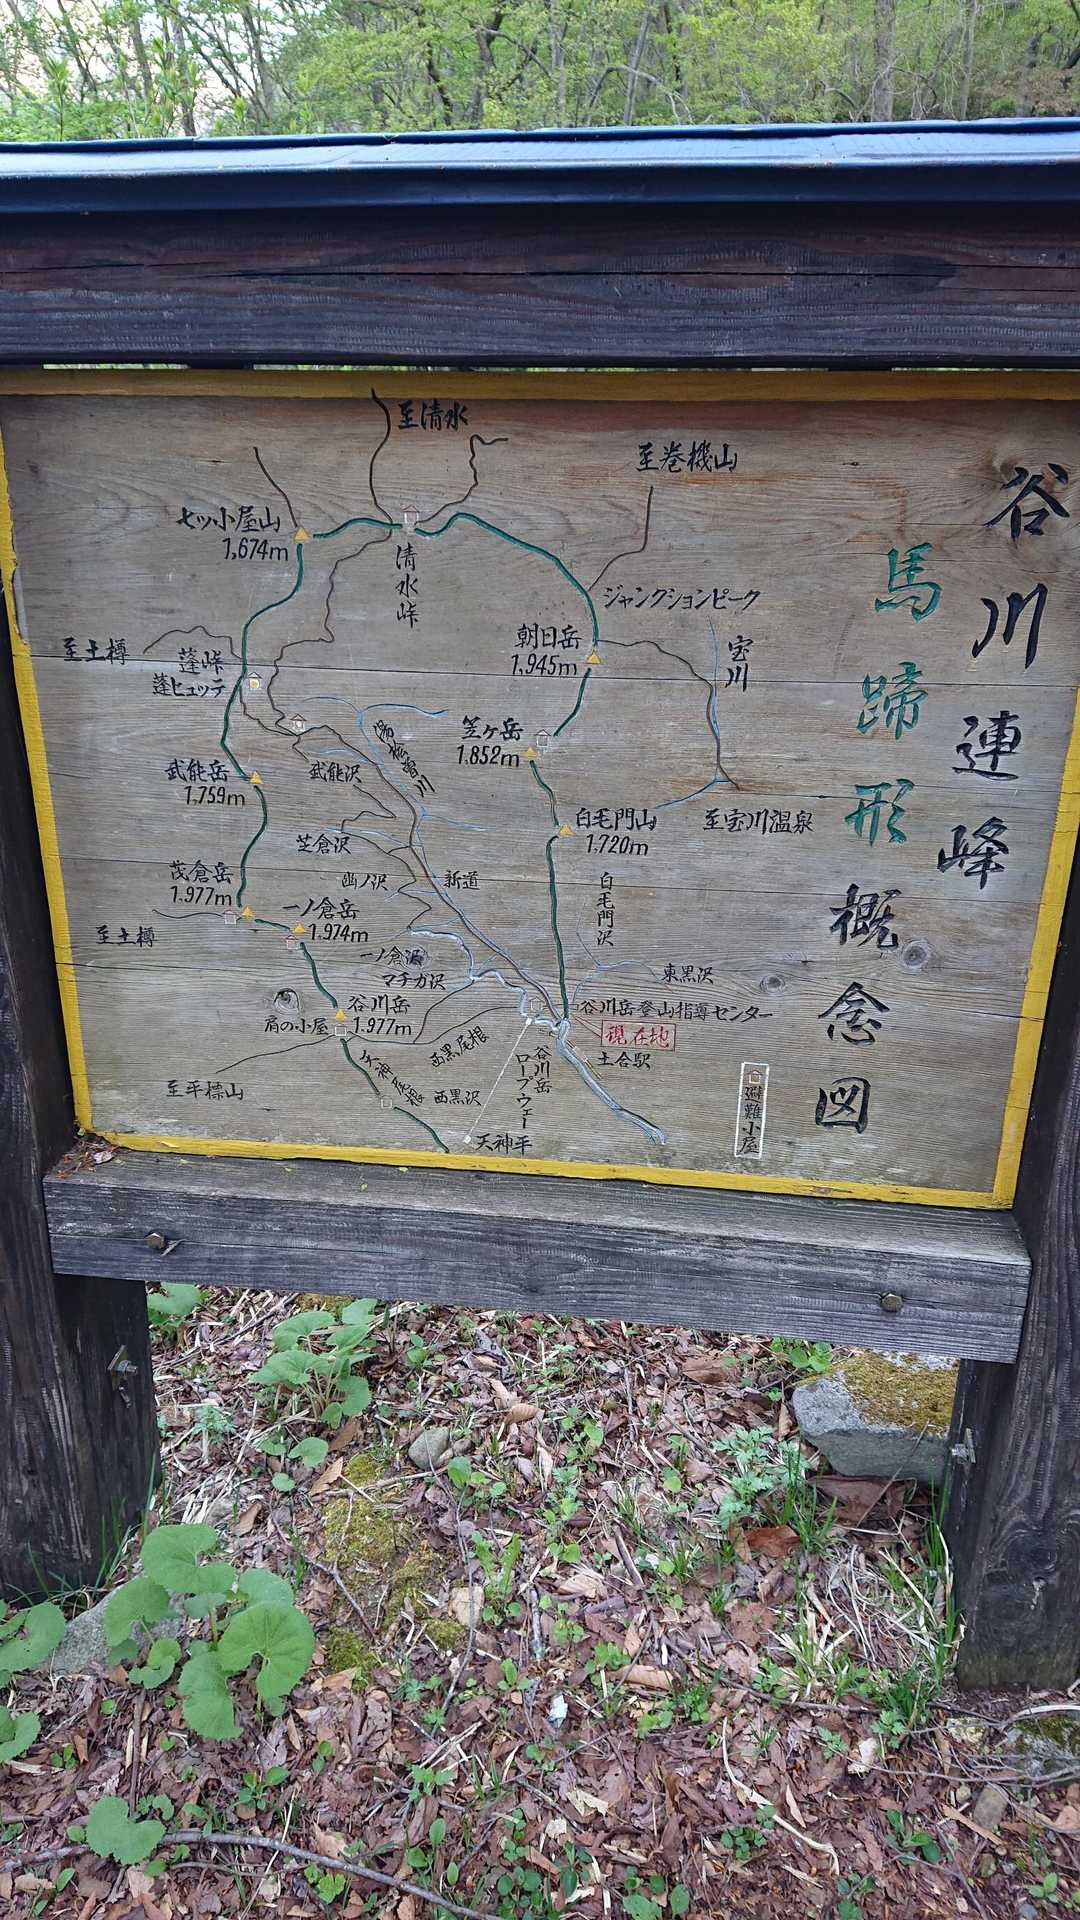 谷川連峰
馬蹄形概念図
至清水
至巻機山
七ッ小屋山
1,674m
清水峠
ジャンクションピーク
朝日岳
1,945m
宝川
至土樽
蓬峠
蓬ヒュッテ
笠ヶ岳
1,852m
湯桧曽川
武能岳
1,759m
武能沢
白毛門山
1,720m
至宝川温泉
芝倉沢
茂倉岳
1,977m
幽ノ沢
新道
白毛門沢
一ノ倉岳
1,974m
至土樽
一ノ倉沢
マチガ沢
東黒沢
谷川岳
1,977m
肩の小屋
谷川岳登山指導センター
現在地
土合駅
西黒尾根
天神尾根
西黒沢
谷川岳
ロープウェー
至平標山
天神平
避難小屋